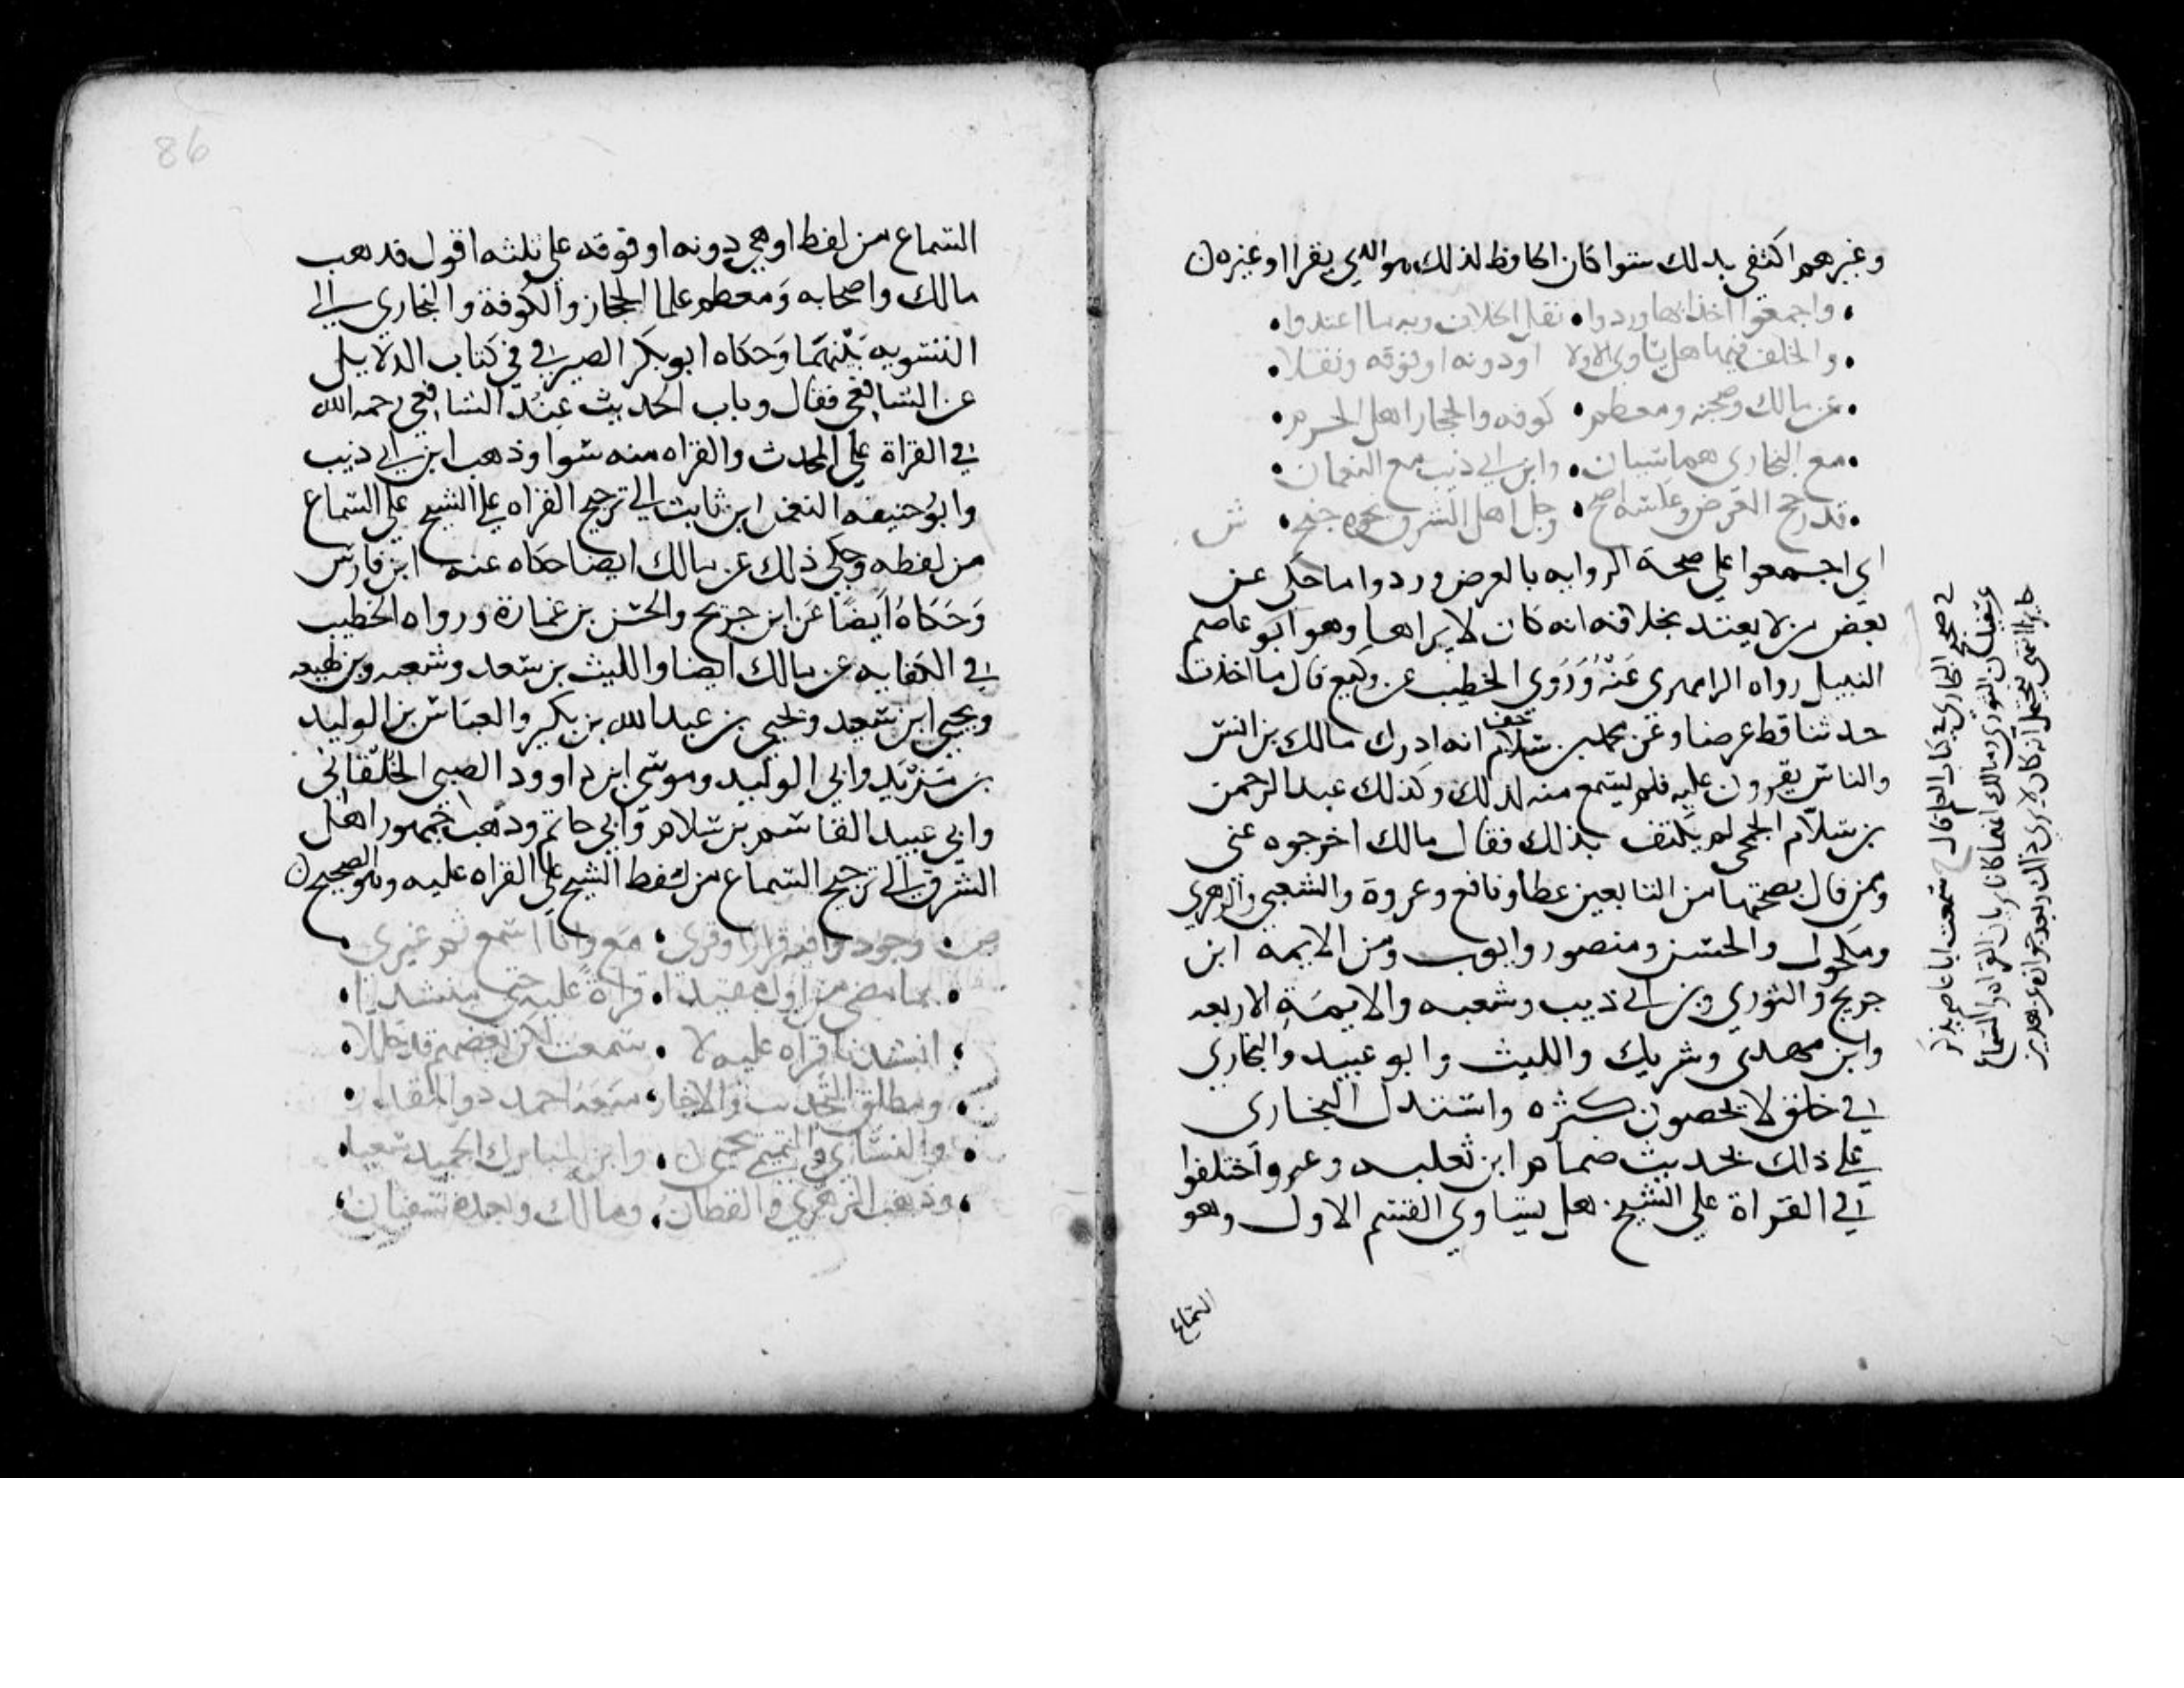 وغيرهم اكتفى بذلك سوا كان الحافظ لذلك هو الذي يقرا او غيره ن
واجمعوا اخذا بها وردوا • نقل الخلاف وبه ما اعتدوا •
والخلف فيها هل يساوي الاولا او دونه او فوقه ونقلا •
عن مالك وصحبه ومعظم • كوفه والحجاز اهل الحرم •
مع البخاري هما سيان • وابن ابي ذيب مع النعمان •
قد رجح العرض وعكسه اصح • وجل اهل الشرق نحوه جنح • ش
اي اجمعوا على صحة الروايه بالعرض وردوا ما حكي عن
بعض من لا يعتد بخلافه انه كان لا يراها وهو ابو عاصم
النبيل رواه الرامهرمزي عنه وروي الخطيب عن وكيع قال ما اخذت
حديثا قط عرضا وعن محمد بن سلام انه ادرك مالك بن انس
والناس يقرون عليه فلم يسمع منه لذلك وكذلك عبد الرحمن
بن سلام الجمحي لم يكتف بذلك فقال مالك اخرجوه عني
وممن قال بصحتها من التابعين عطا ونافع وعروة والشعبي والزهري
ومكحول والحسن ومنصور وايوب ومن الايمه ابن
جريج والثوري وبن ابي ذيب وشعبه والايمة الاربعه
وابن مهدي وشريك والليث وابو عبيد والبخاري
في خلق لا يحصون كثره واستدل البخاري
على ذلك بحديث ضمام ابن ثعلبه وعمر واختلفوا
في القراة على الشيخ هل يساوي القسم الاول وهو
السماع
في صحيح البخاري في كتاب العلم قال سمعت ابا عاصم يذكر
عن سفين الثوري ومالك انهما كانا يريان القراة والسماع
جايزا انتهى فيحتمل انه كان لا يري ذلك
86
السماع من لفظ او هي دونه او فوقه على ثلثه اقول فدهب
مالك واصحابه ومعظم علما الحجاز والكوفة والبخاري الى
التسويه بينهما وحكاه ابو بكر الصيرفي في كتاب الدلايل
عن الشافعي فقال وباب الحديث عند الشافعي رحمه الله
في القراة على المحدث والقراه منه سوا وذهب ابن ابي ذيب
وابو حنيفه النعمن ابن ثابت الى ترجيح القراه على الشيخ على السماع
من لفظه وحكي ذلك عن مالك ايضا حكاه عنه ابن فارس
وحكاه ايضا عن ابن جريج والحسن بن عمارة ورواه الخطيب
في الكفايه عن مالك ايضا والليث بن سعد وشعبه وبن لهيعه
ويحيى ابن سعيد ويحيى بن عبد الله بن بكير والعباس بن الوليد
بن مزيد وابي الوليد وموسى ابن داوود الضبي الخلقاني
وابي عبيد القاسم بن سلام وابي حاتم وذهب جمهور اهل
الشرق الى ترجيح السماع من لفظ الشيخ على القراه عليه وهو الصحيح ن
ص • وجودوا فيه قرات او قري • مع وانا اسمع ثم عبر •
بما مضى من اول مقيدا • قراة عليه حتى منشدا •
انشدنا قراه عليه لا • سمعت لكن بعضهم قد حللا •
ومطلق التحديث والاخبار • منعه احمد ذو المقدار •
والنساي والتميمي يحيى • وابن المبارك الحميد سعيا •
وذهب الزهري والقطان • ومالك وبعده سفيان •